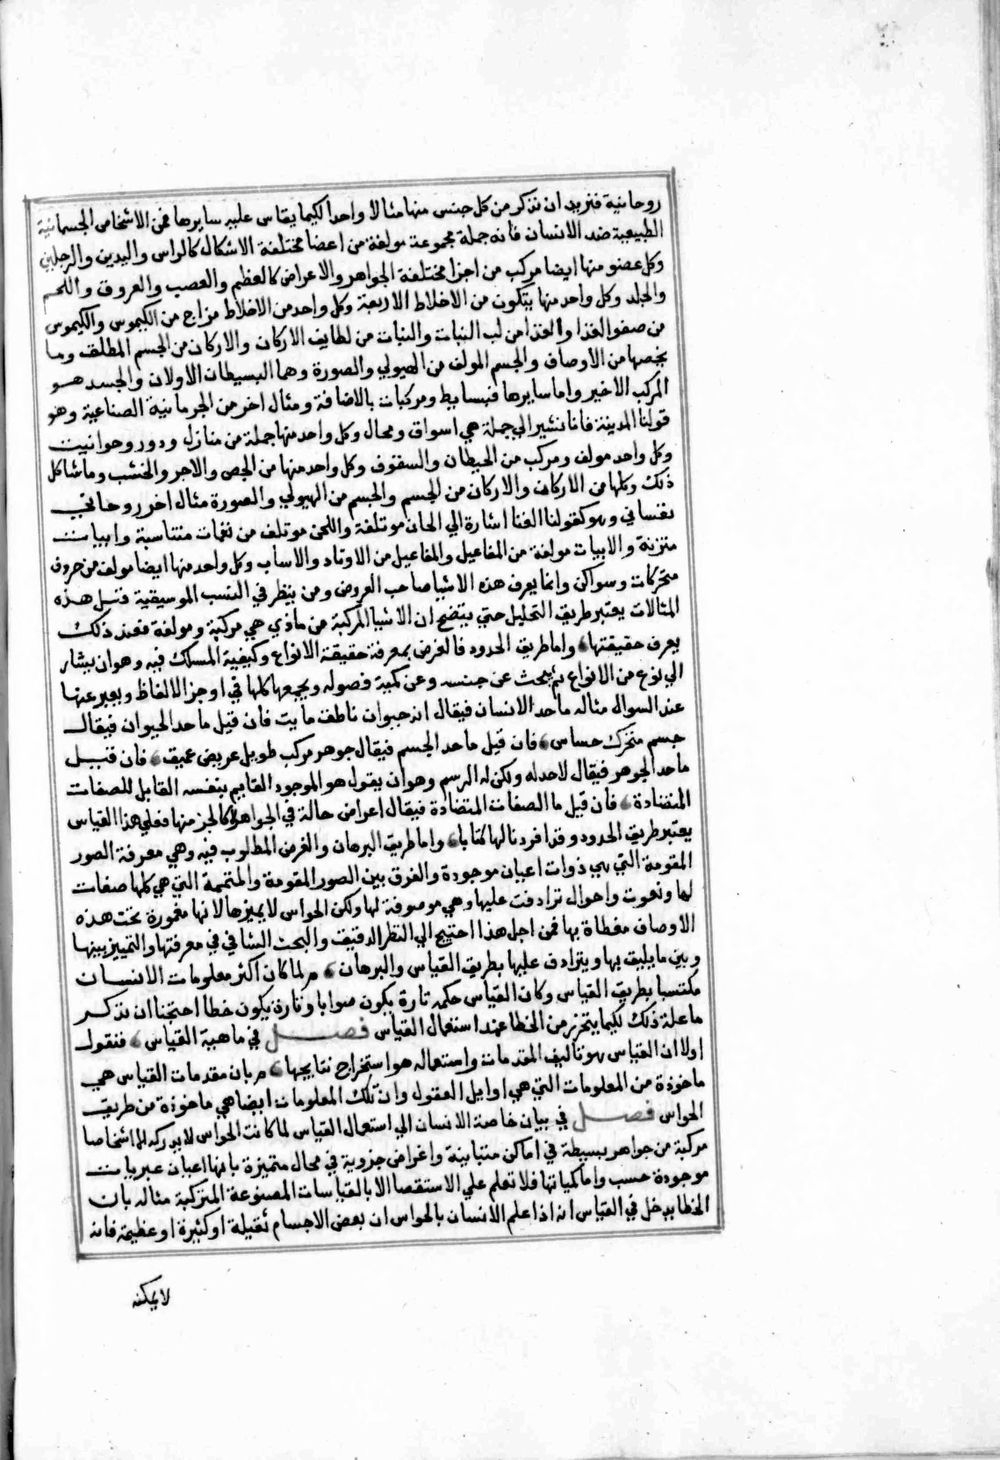 روحانية فنريد ان نذكر من كل جنس منها مثالا واحدا لكيما يقاس عليه سايرها فمن الاشخاص الجسمانية
الطبيعية ضد الانسان فانه جملة مجموعة مولفة من اعضا مختلفة الاشكال كالراس واليدين والرجلين
وكل عضو منها ايضا مركب من اجزا مختلفة الجواهر والاعراض كالعظم والعصب والعروق واللحم
والجلد وكل واحد منها يتكون من الاخلاط الاربعة وكل واحد من الاخلاط مزاج من الكيموس والكيموس
من صفو الغذا والغذا من لب النبات والنبات من لطايف الاركان والاركان من الجسم المطلق وما
يخصها من الاوصاف والجسم المولف من الهيولي والصورة وهما البسيطان الاولان والجسد هو
المركب الاخير واما سايرها فبسايط ومركبات بالاضافة ومثال اخر من الجرمانية الصناعية وهو
قولنا المدينة فانا نشير الي جملة هي اسواق ومحال وكل واحد منها جملة من منازل ودور وحوانيت
وكل واحد مولف ومركب من الحيطان والسقوف وكل واحد منها من الجص والاجر والخشب وما شاكل
ذلك وكلها من الاركان والاركان من الجسم والجسم من الهيولي والصورة مثال اخر روحاني
نفساني وهو كقولنا الغنا اشارة الي الحان موتلفة واللحن موتلف من نغمات متناسبة وابيات
متزنة والابيات مولفة من المفاعيل والمفاعيل من الاوتاد والاسباب وكل واحد منها ايضا مولف من حروف
متحركات وسواكن وانما يعرف هذه الاشيا صاحب العروض ومن ينظر في النسب الموسيقية فتل هذه
المثالات يعتبر طريق التحليل حتي يتضح ان الاشيا المركبة من ماذي هي مركبة ومولفة فعند ذلك
يعرف حقيقتها واما طريق الحدود فالغرض بمعرفة حقيقة الانواع وكيفية المسلك فيه وهو ان يشار
الي نوع من الانواع ثم يبحث عن جنسه وعن كمية فصوله ويجمعها كلها في اوجز الالفاظ ويعبر عنها
عند السوال مثاله ما حد الانسان فيقال انه حيوان ناطق مايت فان قيل ما حد الحيوان فيقال
جسم متحرك حساس فان قيل ما حد الجسم فيقال جوهر مركب طويل عريض عميق فان قيل
ما حد الجوهر فيقال لا حد له ولكن له الرسم وهو ان يقول هو الموجود القايم بنفسه القابل للصفات
المتضادة فان قيل ما الصفات المتضادة فيقال اعراض حالة في الجواهر لا كالجز منها فعلي هذا القياس
يعتبر طريق الحدود وقد افردنا لها كتابا واما طريق البرهان والغرض المطلوب فيه وهي معرفة الصور
المقومة التي هي ذوات اعيان موجودة والفرق بين الصور المقومة والمتممة التي هي كلها صفات
لها ونعوت واحوال ترادفت عليها وهي موصوفة لها ولكن الحواس لا يميزها لانها مغمورة تحت هذه
الاوصاف مغطاة بها فمن اجل هذا احتيج الي النظر الدقيق والبحث الشافي في معرفتها والتمييز بينها
وبين ما يليق بها ويترادف عليها بطريق القياس والبرهان ولما كان اكثر معلومات الانسان
مكتسبا بطريق القياس وكان القياس حكمه تارة يكون صوابا وتارة يكون خطا احتجنا ان نذكر
ما علة ذلك لكيما يتحرز من الخطا عند استعمال القياس فصل في ماهية القياس فنقول
اولا ان القياس هو تاليف المقدمات واستعماله هو استخراج نتايجها بان مقدمات القياس هي
ماخوذة من المعلومات التي هي اوايل العقول وان تلك المعلومات ايضا هي ماخوذة من طريق
الحواس فصل في بيان خاصة الانسان الي استعمال القياس لما كانت الحواس لا يدركه الا اشخاصا
مركبة من جواهر بسيطة في اماكن متباينة واعراض جزوية في محال متميزة بانها اعيان غيريات
موجودة حسب واما كمياتها فلا تعلم علي الاستقصا الا بالقياسات المصنوعة المتركبة مثاله بان
الخطا يدخل في القياس انه اذا علم الانسان بالحواس ان بعض الاجسام ثقيلة او كثيرة او عظيمة فانه
لا يمكنه